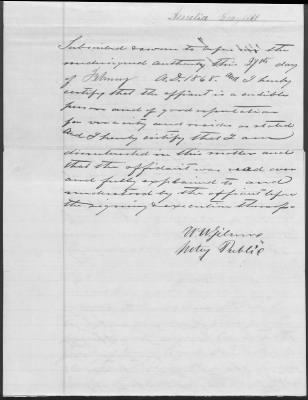 Subscribed & sworn to before me the
undersigned authority this 29th day
of February A.D. 1868. And I hereby
certify that the affiant is a credible
person and of good reputation
for veracity and resides as stated
And I hereby certify that I am
disinterested in this matter and
that the affidavit was read over
and fully explained to and
understood by the affiant before
the signing & execution thereof
Notry Public